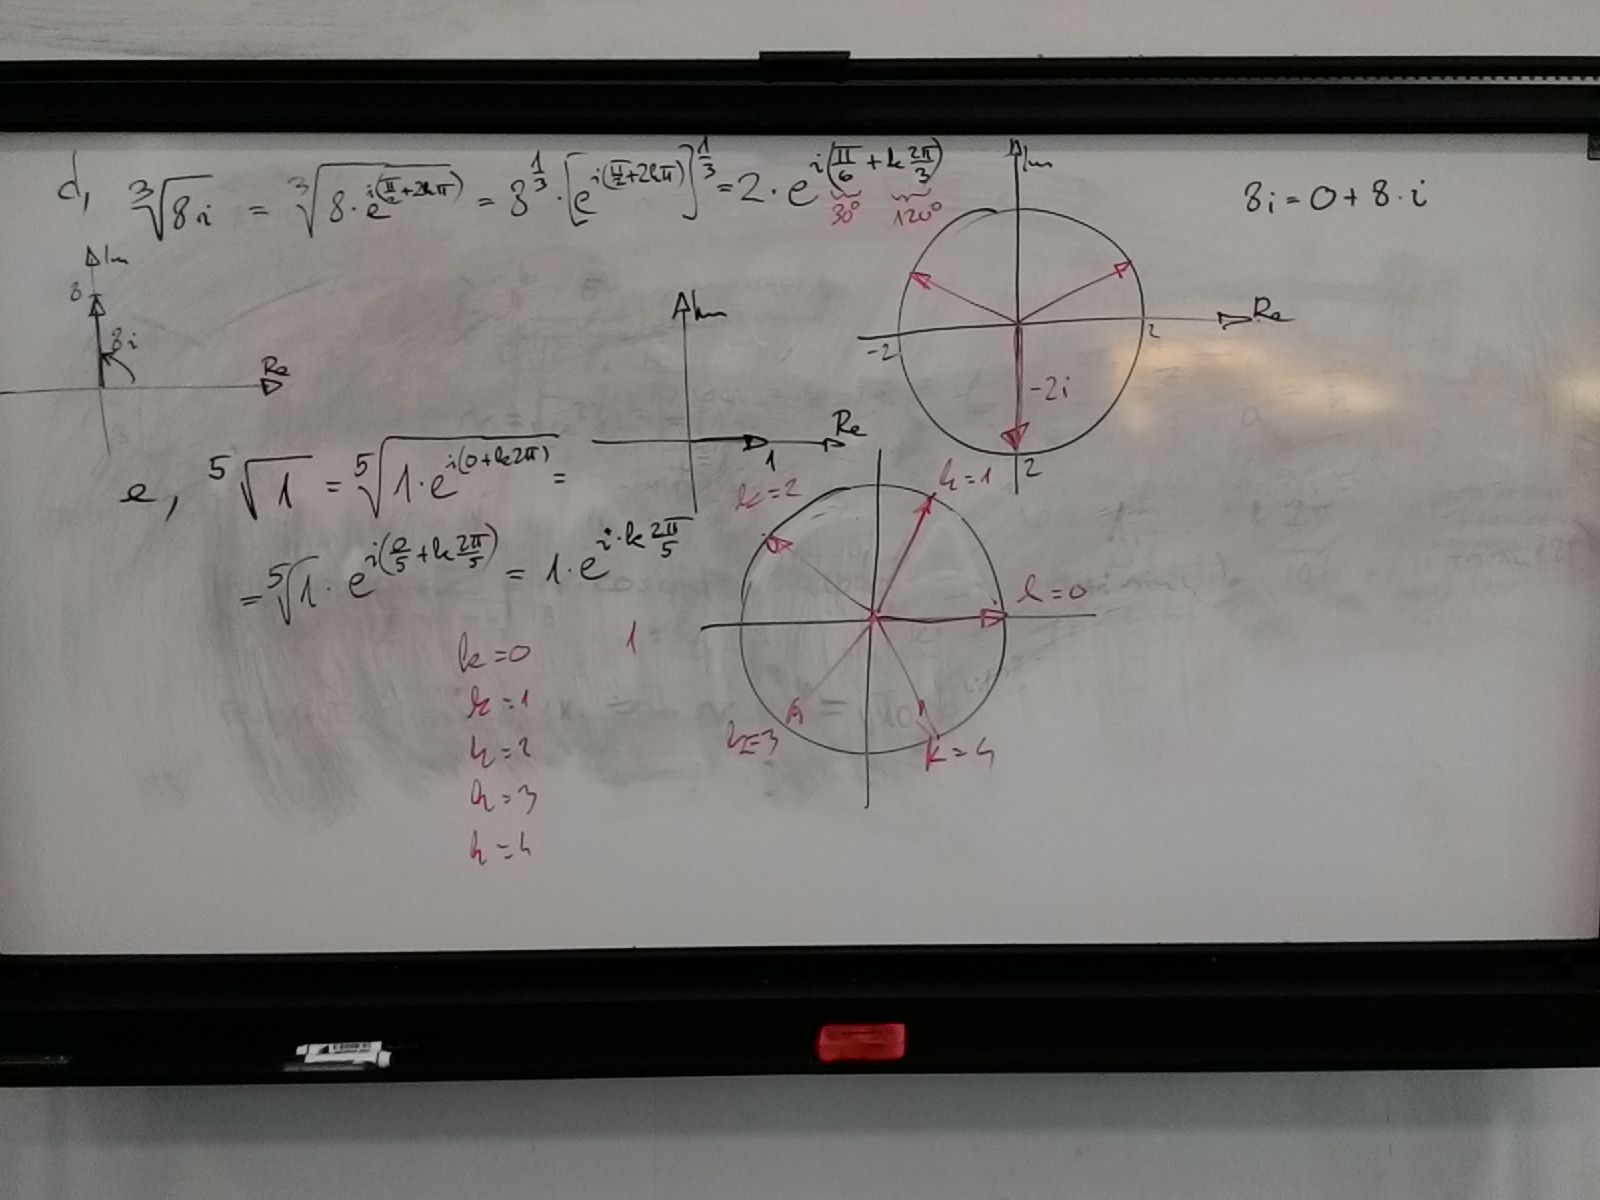 d, ∛8i = ∛8·e^i(π/2+2kπ) = 8^1/3 · [e^i(π/2+2kπ)]^1/3 = 2·e^i(π/6 + k 2π/3)
30° 120°
8i = 0 + 8·i
Im
8
8i
Re
Im
Re
-2
2
-2i
2
Im
Re
1
e, ⁵√1 = ⁵√1·e^i(0+k2π) =
= ⁵√1 · e^i(0/5 + k 2π/5) = 1·e^i·k 2π/5
k=0
k=1
k=2
k=3
k=4
1
k=2
k=1
k=0
k=3
k=4